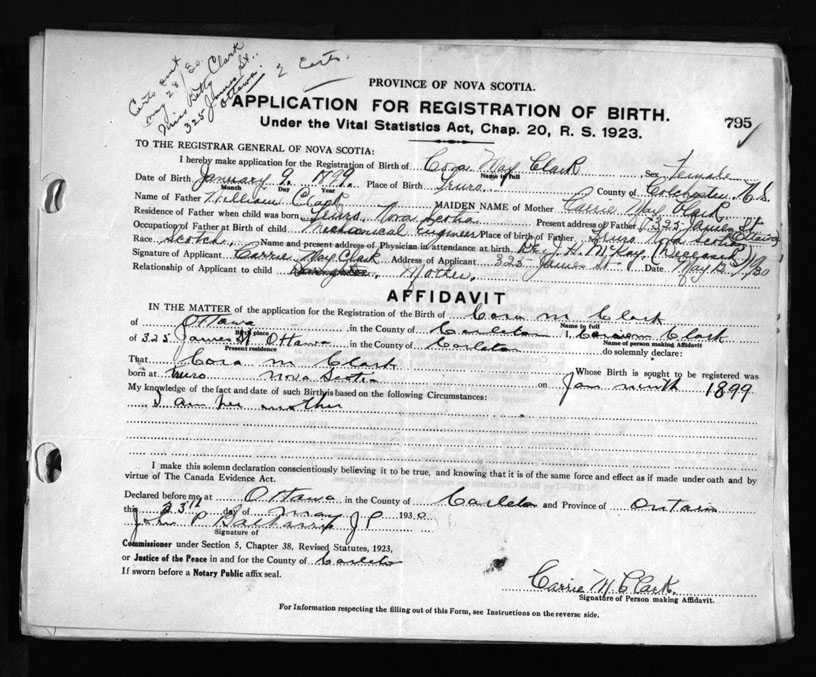 Certs sent
may 28/30
Miss Betty Clark
325 James St.
Ottawa.
2 Certs.
PROVINCE OF NOVA SCOTIA.
APPLICATION FOR REGISTRATION OF BIRTH.
795
Under the Vital Statistics Act, Chap. 20, R. S. 1923.
TO THE REGISTRAR GENERAL OF NOVA SCOTIA:
I hereby make application for the Registration of Birth of Cora May Clark Sex Female
Name in full
Date of Birth January 9. 1899. Place of Birth Truro. County of Colchester N.S.
Month Day Year
Name of Father William Clark MAIDEN NAME of Mother Carrie May Clark
Residence of Father when child was born Truro, Nova Scotia Present address of Father 325 James St Ottawa
Occupation of Father at Birth of child Mechanical Engineer Place of birth of Father Truro Nova Scotia
Race Scotch, Name and present address of Physician in attendance at birth, Dr. J. H. McKay, (Deceased)
Signature of Applicant Carrie May Clark Address of Applicant 325 James St Date May 12/30
Relationship of Applicant to child Mother.
AFFIDAVIT
IN THE MATTER of the application for the Registration of the Birth of Cora M Clark
Name in full
of Ottawa, in the County of Carleton I, Clark
Birth place
Name of person making Affidavit
of 325 James St Ottawa in the County of Carleton do solemnly declare:
Present residence
That Cora M Clark Whose Birth is sought to be registered was
born at Truro Nova Scotia on Jan ninth 1899
My knowledge of the fact and date of such Birth is based on the following Circumstances:
I am her mother
I make this solemn declaration conscientiously believing it to be true, and knowing that it is of the same force and effect as if made under oath and by
virtue of The Canada Evidence Act.
Declared before me at Ottawa in the County of Carleton and Province of Ontario
this 23rd day of May 1930
John P J P
Signature of
Commissioner under Section 5, Chapter 38, Revised Statutes, 1923,
or Justice of the Peace in and for the County of Carleton
If sworn before a Notary Public affix seal.
Carrie M. Clark.
Signature of Person making Affidavit.
For Information respecting the filling out of this Form, see Instructions on the reverse side.